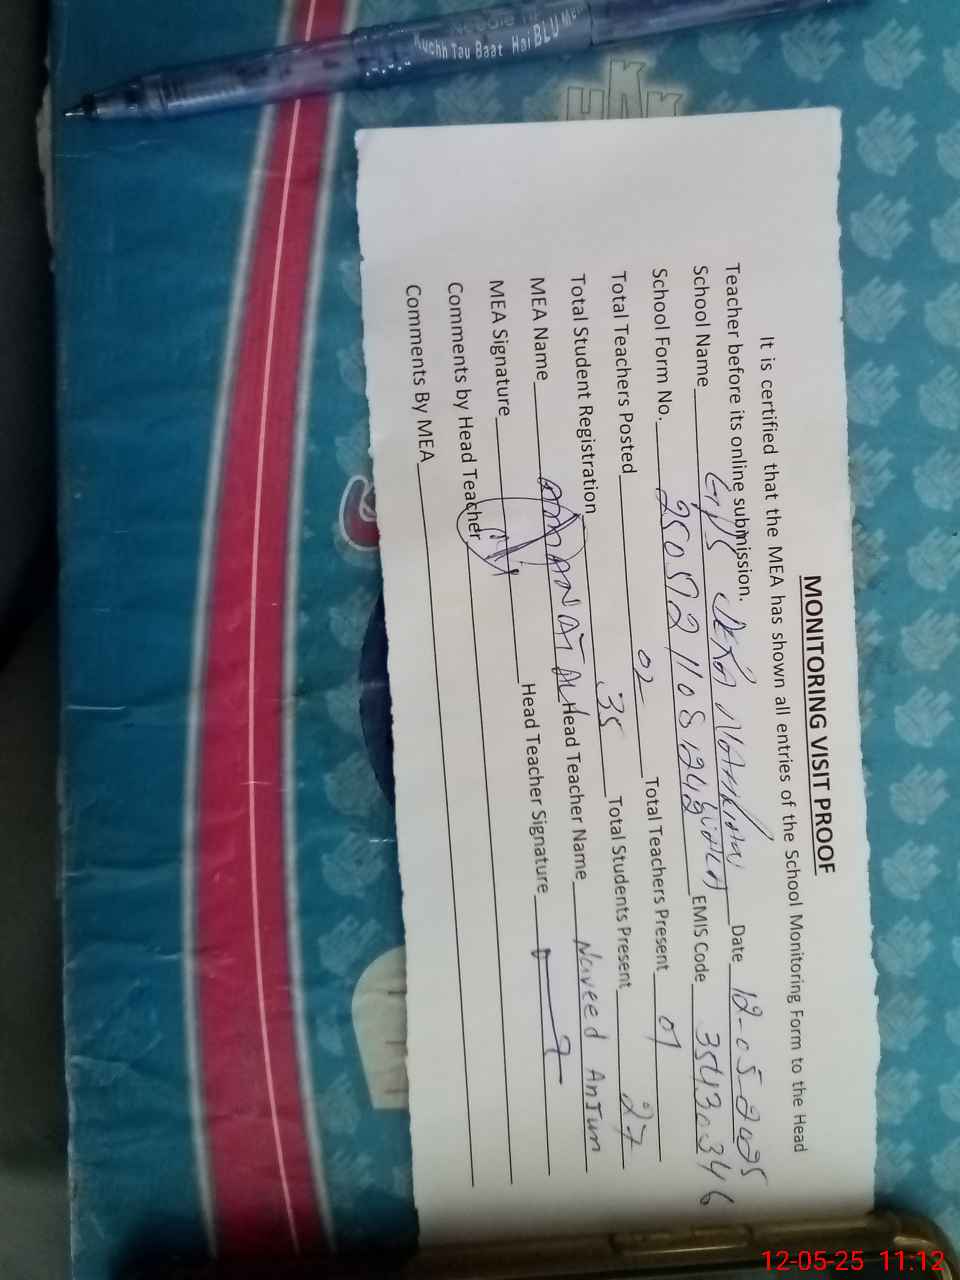 Needle Ti
Kuchh Tau Baat Hai BLU Men
MONITORING VISIT PROOF
It is certified that the MEA has shown all entries of the School Monitoring Form to the Head
Teacher before its online submission.
School Name GPS Date 12-05-2025
School Form No. EMIS Code 35430346
Total Teachers Posted 02 Total Teachers Present 01
Total Student Registration 35 Total Students Present 27
MEA Name AMANAT ALI Head Teacher Name Naveed Anjum
MEA Signature Head Teacher Signature
Comments by Head Teacher
Comments By MEA
12-05-25 11:12